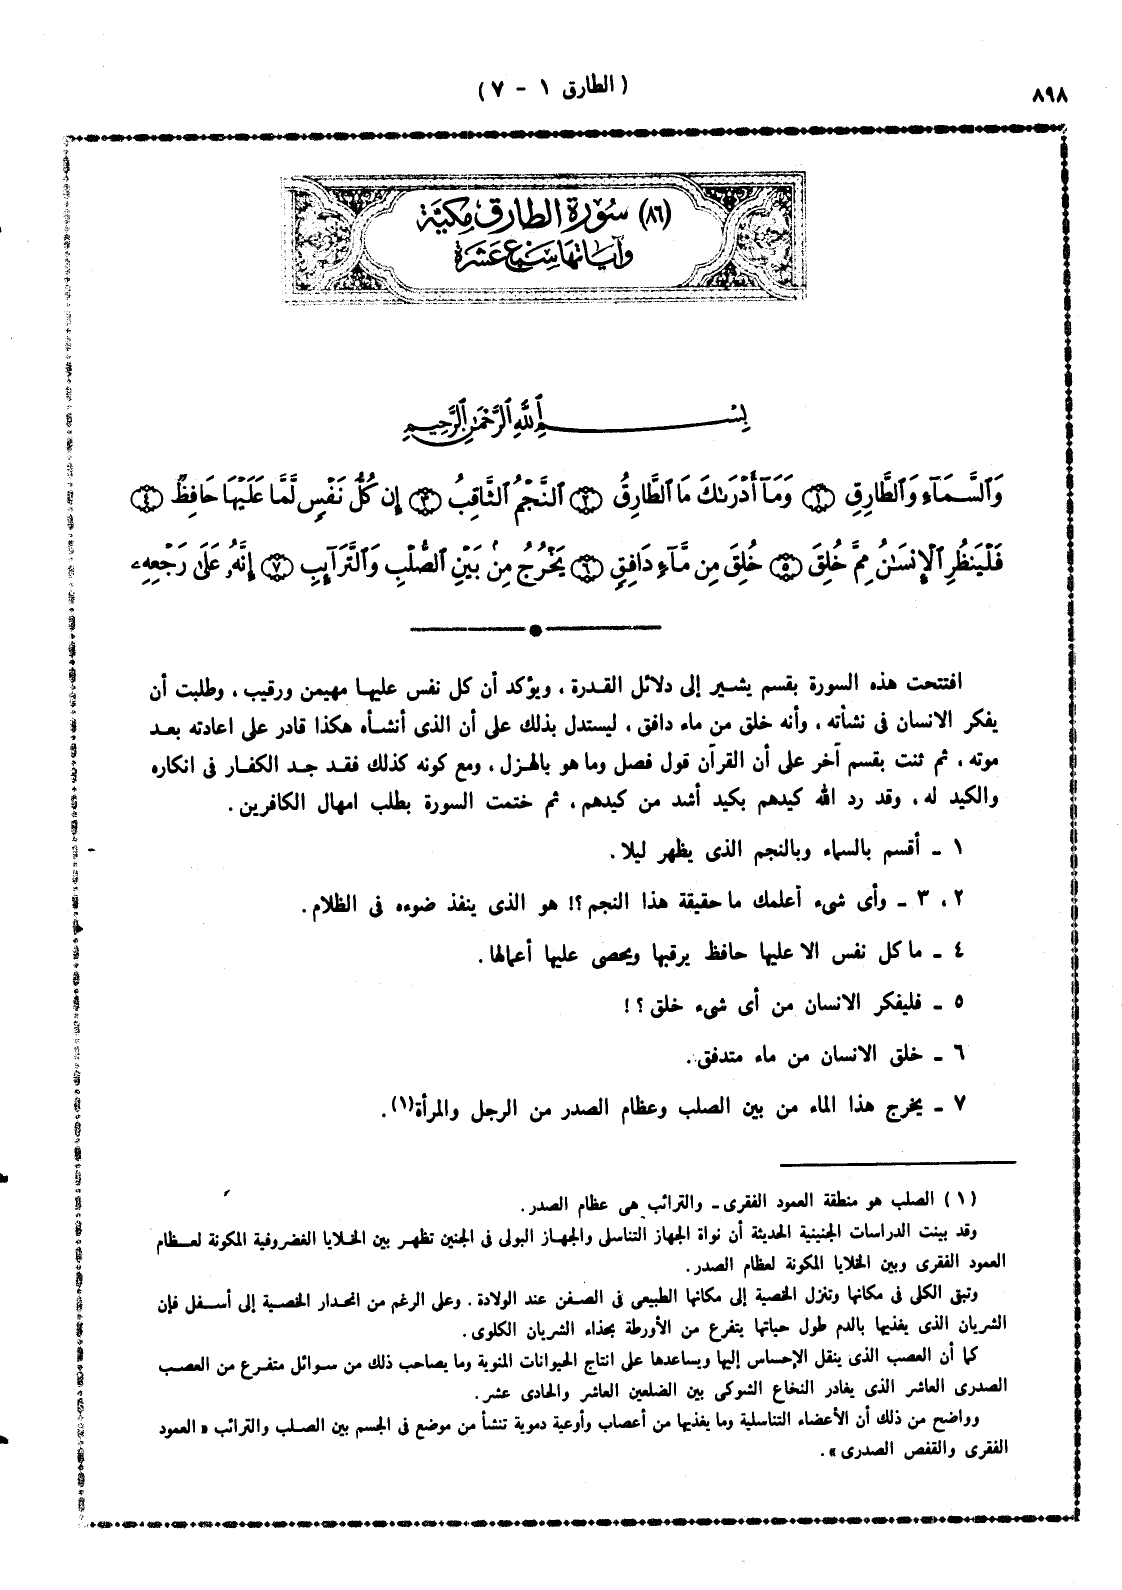 ٨٩٨
( الطارق ١ - ٧ )
(٨٦) سُورَة الطارق مكيّة
وآياتها سَبْع عَشرَة
بِسْمِ ٱللَّهِ ٱلرَّحْمَٰنِ ٱلرَّحِيمِ
وَٱلسَّمَآءِ وَٱلطَّارِقِ ١ وَمَآ أَدْرَىٰكَ مَا ٱلطَّارِقُ ٢ ٱلنَّجْمُ ٱلثَّاقِبُ ٣ إِن كُلُّ نَفْسٍ لَّمَّا عَلَيْهَا حَافِظٌ ٤
فَلْيَنظُرِ ٱلْإِنسَٰنُ مِمَّ خُلِقَ ٥ خُلِقَ مِن مَّآءٍ دَافِقٍ ٦ يَخْرُجُ مِنۢ بَيْنِ ٱلصُّلْبِ وَٱلتَّرَآئِبِ ٧ إِنَّهُۥ عَلَىٰ رَجْعِهِۦ
افتتحت هذه السورة بقسم يشير إلى دلائل القدرة ، ويؤكد أن كل نفس عليها مهيمن ورقيب ، وطلبت أن
يفكر الانسان فى نشأته ، وأنه خلق من ماء دافق ، ليستدل بذلك على أن الذى أنشأه هكذا قادر على اعادته بعد
موته ، ثم ثنت بقسم آخر على أن القرآن قول فصل وما هو بالهزل ، ومع كونه كذلك فقد جد الكفار فى انكاره
والكيد له ، وقد رد الله كيدهم بكيد أشد من كيدهم ، ثم ختمت السورة بطلب امهال الكافرين .
١ ـ أقسم بالسماء وبالنجم الذى يظهر ليلا .
٢ ، ٣ ـ وأى شىء أعلمك ما حقيقة هذا النجم ؟! هو الذى ينفذ ضوءه فى الظلام .
٤ ـ ما كل نفس الا عليها حافظ يرقبها ويحصى عليها أعمالها .
٥ ـ فليفكر الانسان من أى شىء خلق ؟ !
٦ ـ خلق الانسان من ماء متدفق .
٧ ـ يخرج هذا الماء من بين الصلب وعظام الصدر من الرجل والمرأة(١) .
(١) الصلب هو منطقة العمود الفقرى ـ والترائب هى عظام الصدر .
وقد بينت الدراسات الجنينية الحديثة أن نواة الجهاز التناسلى والجهاز البولى فى الجنين تظهر بين الخلايا الغضروفية المكونة لعظام
العمود الفقرى وبين الخلايا المكونة لعظام الصدر .
وتبقى الكلى فى مكانها وتنزل الخصية إلى مكانها الطبيعى فى الصفن عند الولادة . وعلى الرغم من انحدار الخصية إلى أسفل فإن
الشريان الذى يغذيها بالدم طول حياتها يتفرع من الأورطة بحذاء الشريان الكلوى .
كما أن العصب الذى ينقل الإحساس إليها ويساعدها على انتاج الحيوانات المنوية وما يصاحب ذلك من سوائل متفرع من العصب
الصدرى العاشر الذى يغادر النخاع الشوكى بين الضلعين العاشر والحادى عشر .
وواضح من ذلك أن الأعضاء التناسلية وما يغذيها من أعصاب وأوعية دموية تنشأ من موضع فى الجسم بين الصلب والترائب « العمود
الفقرى والقفص الصدرى » .